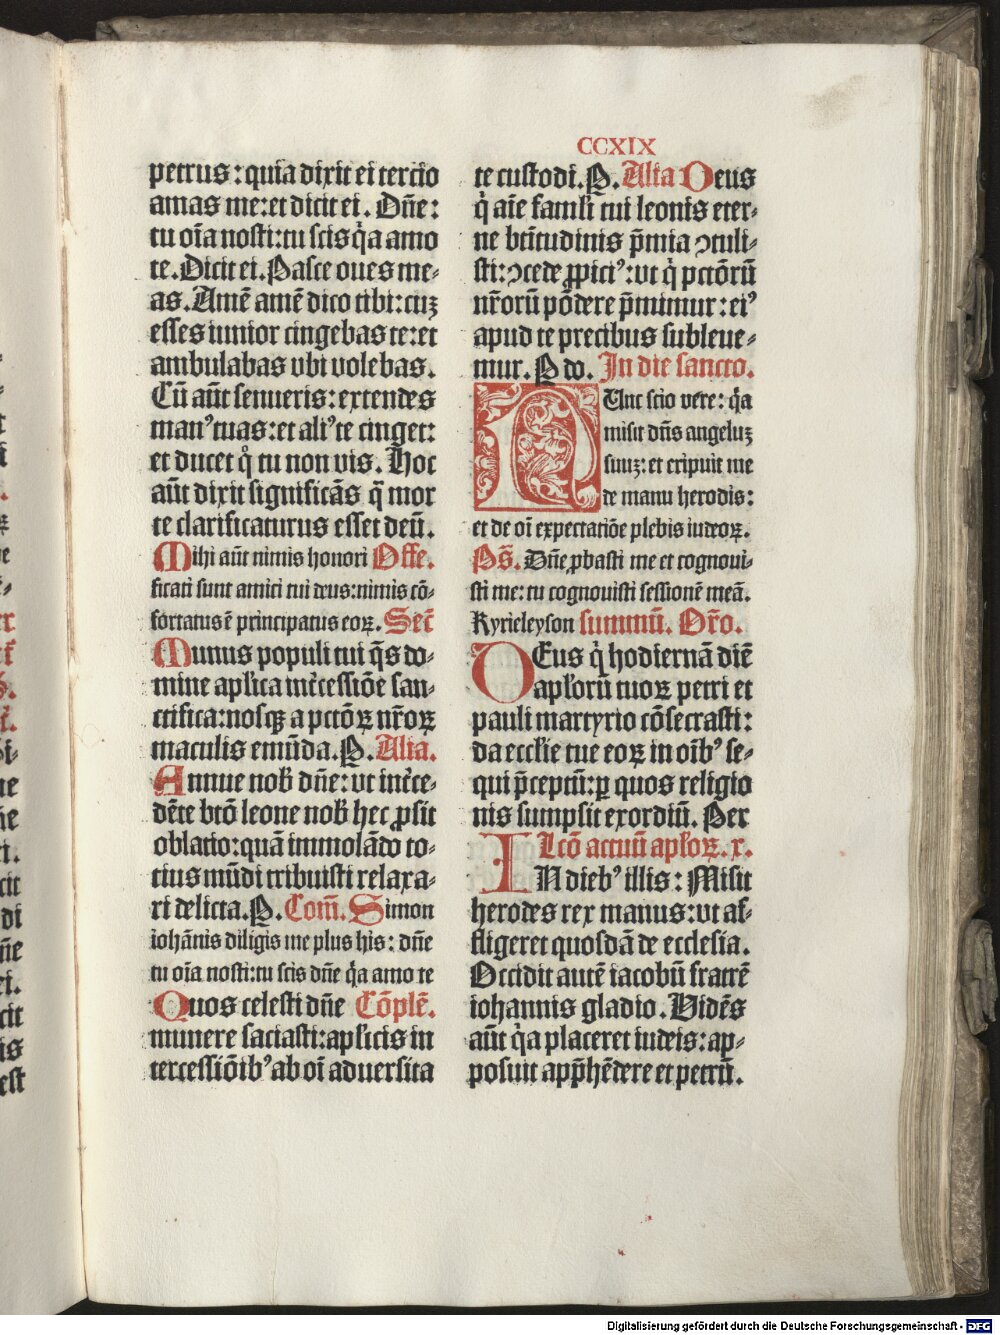 CCXIX
petrus: quia dixit ei tercio
amas me: et dicit ei. Dn̄e:
tu oīa nosti: tu scis q̇a amo
te. Dicit ei. Pasce oues me⸗
as. Amē amē dico tibi: cuȝ
esses iunior cingebas te: et
ambulabas vbi volebas.
Cū aūt senueris: extendes
manꝰ tuas: et aliꝰ te cinget:
et ducet q̊ tu non vis. Hoc
aūt dixit significās q̄ mor
te clarificaturus esset deū.
Mihi aūt nimis honori Offe.
ficati sunt amici tui deus: nimis cō⸗
fortatus ē principatus eoꝝ. Secr̄
Munus populi tui q̄s do⸗
mine apl̓ica int̄cessiōe san⸗
ctifica: nosqꝫ a pctōꝝ nr̄oꝝ
maculis emūda. P. Alia.
Annue nob̓ dn̄e: vt int̄ce⸗
dēte btō leone nob̓ hec ꝓsit
oblatio: quā immolādo to⸗
tius mūdi tribuisti relaxa⸗
ri delicta. P. Com̄. Simon
iohānis diligis me plus his: dn̄e
tu oīa nosti: tu scis dn̄e q̇a amo te
Quos celesti dn̄e Cōplē.
munere saciasti: apl̓icis in
tercessiōibꝰ ab oī aduersita
te custodi. P. Alia Deus
q̇ aīe famĺi tui leonis eter⸗
ne btītudinis p̄mia ꝯtuli⸗
sti: ꝯcede ꝓpiciꝰ: vt q̇ pctōrū
nr̄orū pōdere p̄mimur: eiꝰ
apud te precibus subleue⸗
mur. P do. In die sancto.
NUnc scio vere: q̇a
misit dn̄s angeluȝ
suuȝ: et eripuit me
de manu herodis:
et de oī expectatiōe plebis iudeoꝝ.
Ps̄. Dn̄e ꝓbasti me et cognoui⸗
sti me: tu cognouisti sessionē meā.
Kyrieleyson summū. Or̄o.
DEus q̇ hodiernā diē
apl̓orū tuoꝝ petri et
pauli martyrio cōsecrasti:
da eccl̓ie tue eoꝝ in oībꝰ se⸗
qui p̄ceptū: ꝑ quos religio
nis sumpsit exordiū. Per
Lcō actuū apl̓oꝝ. x.
IN diebꝰ illis: Misit
herodes rex manus: vt af⸗
fligeret quosdā de ecclesia.
Occidit autē iacobū fratrē
iohannis gladio. Vidēs
aūt q̇a placeret iudeis: ap⸗
posuit app̄hēdere et petrū.
Digitalisierung gefördert durch die Deutsche Forschungsgemeinschaft - DFG